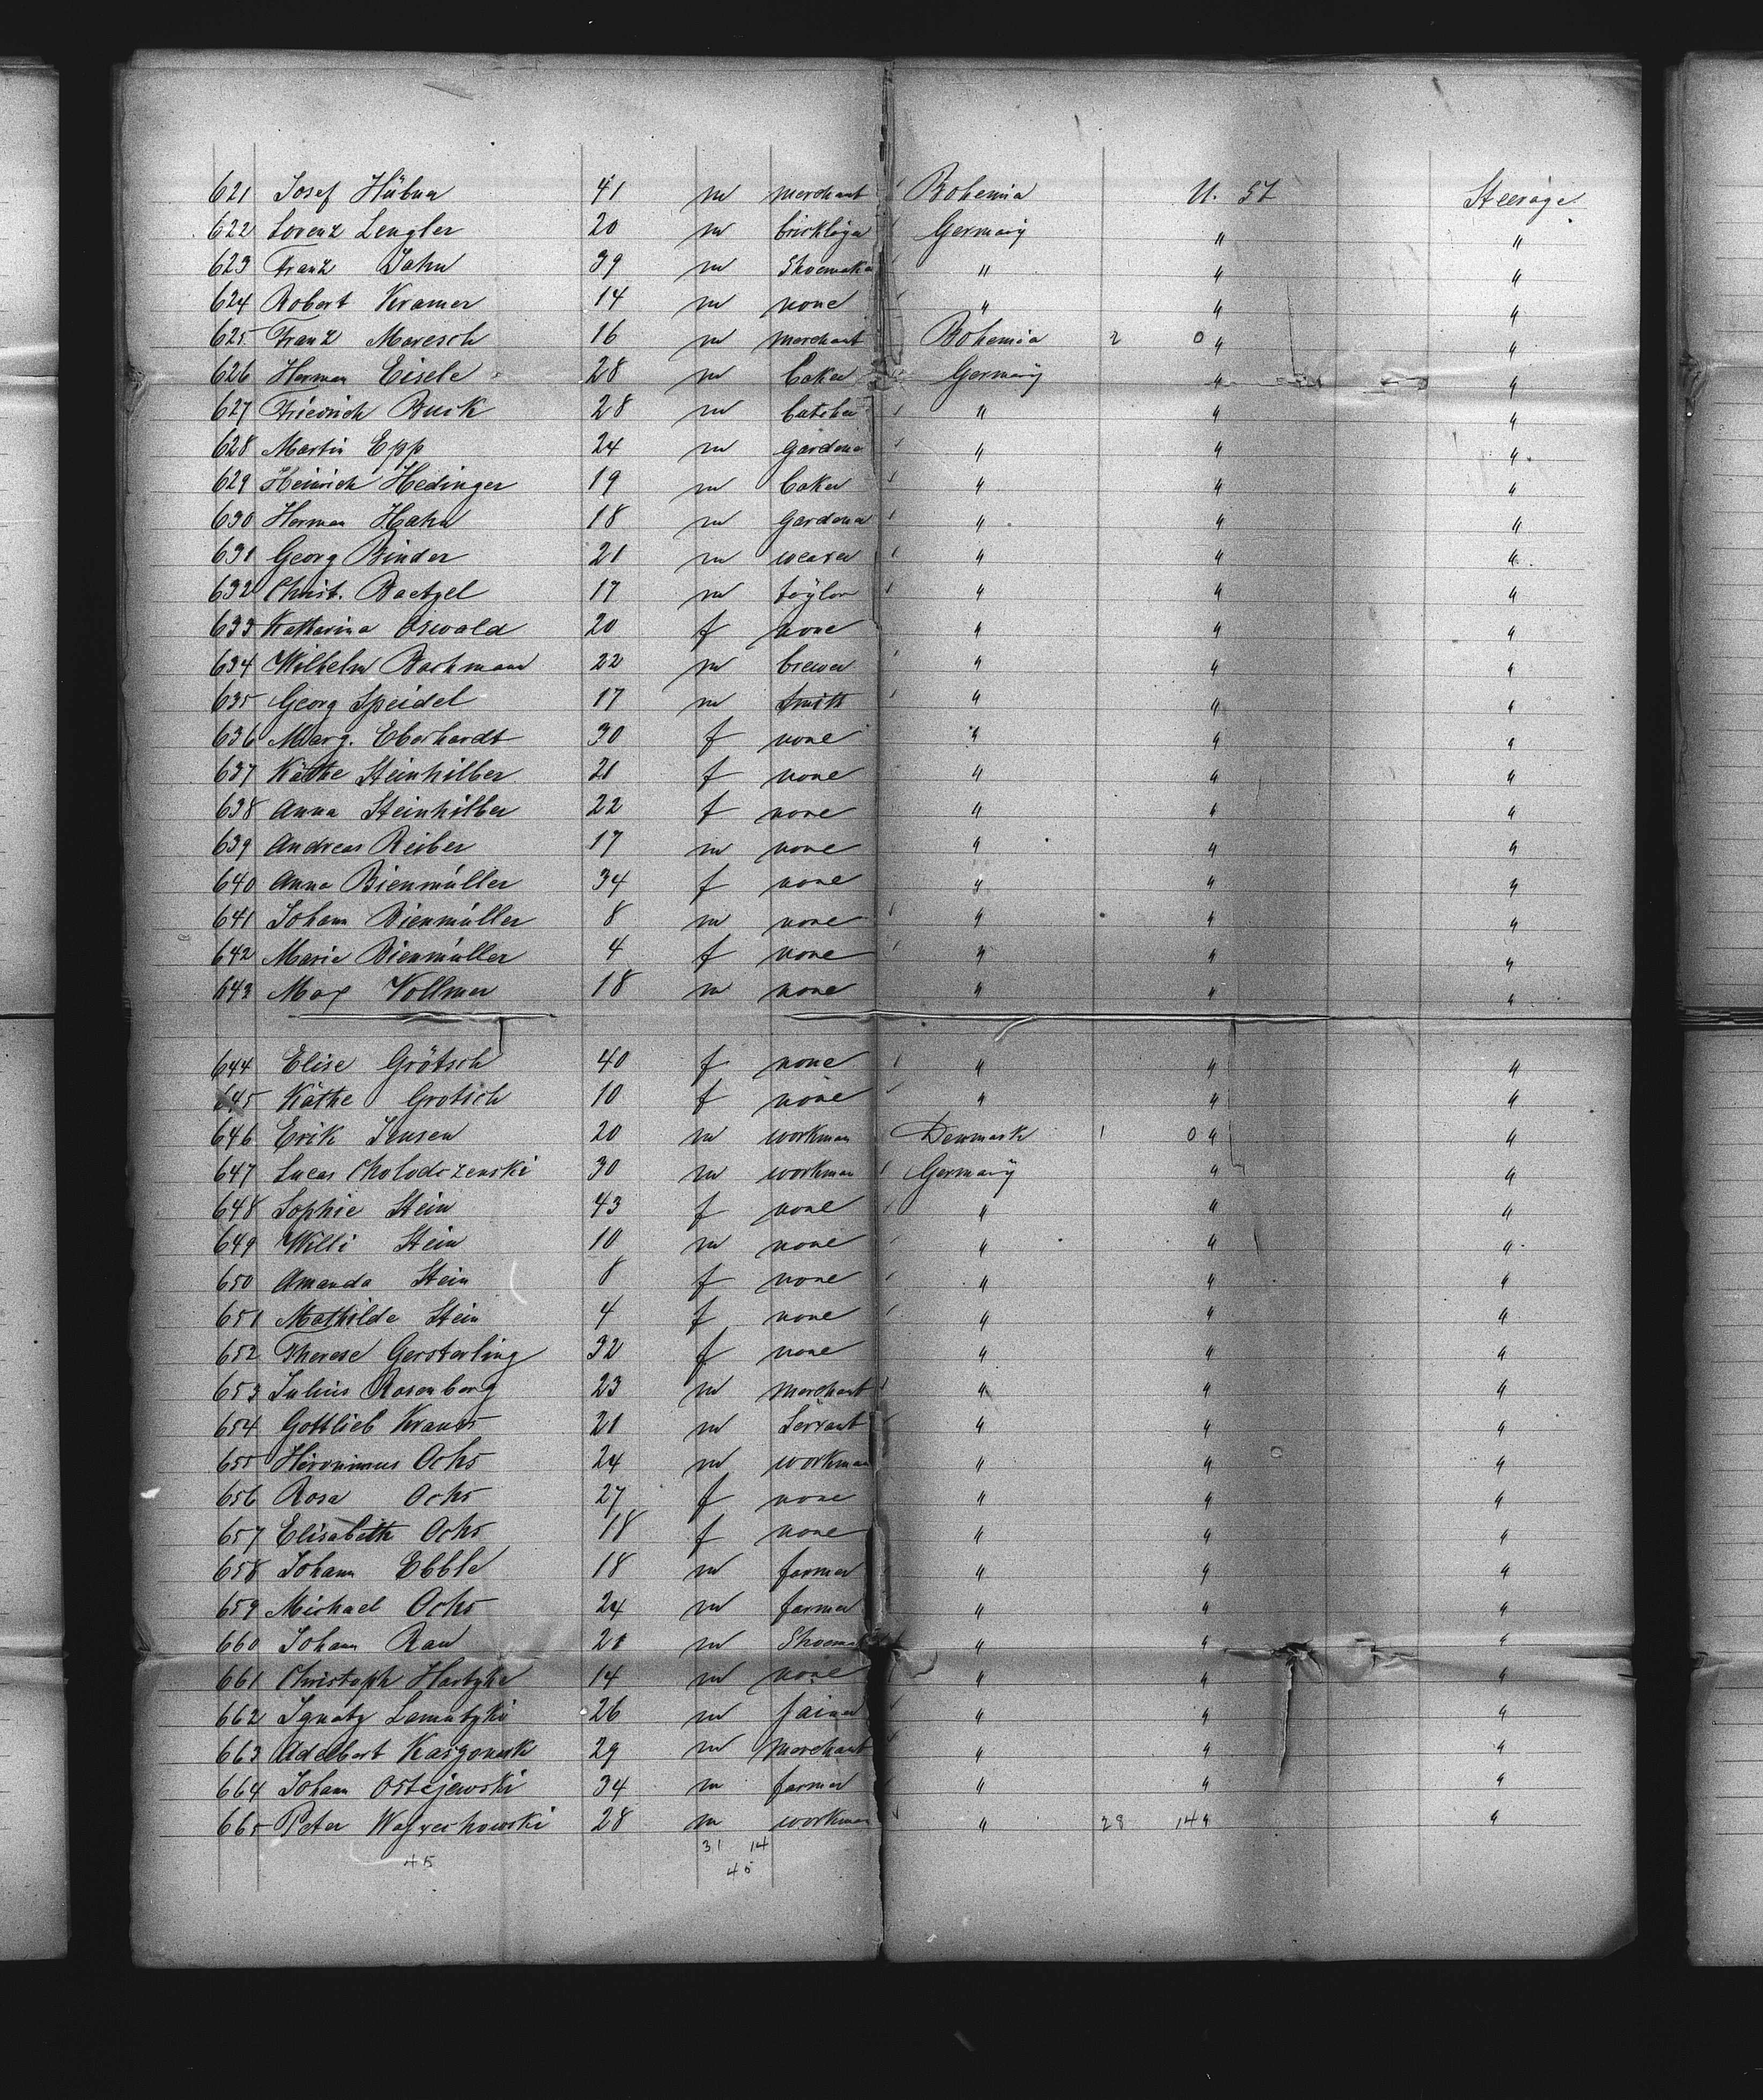 621 Josef Hübna 41 m merchant Bohemia U. St Steerage
622 Lorenz Lengler 20 m bricklaya Germany " "
623 Franz Jahn 39 m Shoemaka " " "
624 Robert Kramer 14 m none " " "
625 Franz Maresch 16 m merchant Bohemia 2 0 " "
626 Herman Eisele 28 m baker Germany " "
627 Friedrich Buck 28 m butcher " " "
628 Martin Epp 24 m gardena " " "
629 Heinrich Hedinger 19 m baker " " "
630 Herman Hahn 18 m gardena " " "
631 Georg Binder 21 m weaver " " "
632 Christ. Baetzel 17 m taylor " " "
633 Katharina Oswald 20 f none " " "
634 Wilhelm Bachmann 22 m brewer " " "
635 Georg Speidel 17 m smith " " "
636 Marg. Eberhardt 30 f none " " "
637 Käthe Steinhilber 21 f none " " "
638 Anna Steinhilber 22 f none " " "
639 Andreas Reiber 17 m none " " "
640 Anna Bienmüller 34 f none " " "
641 Johann Bienmüller 8 m none " " "
642 Marie Bienmüller 4 f none " " "
643 Max Vollmer 18 m none " " "
644 Elise Grötsch 40 f none " " "
645 Käthe Grotsch 10 f none " " "
646 Erik Jensen 20 m workman Denmark 1 0 " "
647 Lucas Cholodczenski 30 m workman Germany " "
648 Sophie Stein 43 f none " " "
649 Willi Stein 10 m none " " "
650 Amanda Stein 8 f none " " "
651 Mathilde Stein 4 f none " " "
652 Therese Gersterling 32 f none " " "
653 Julius Rosenberg 23 m merchant " " "
654 Gottlieb Krauss 21 m Servant " " "
655 Hironimus Ochs 24 m workman " " "
656 Rosa Ochs 27 f none " " "
657 Elisabeth Ochs 18 f none " " "
658 Johann Ebble 18 m farmer " " "
659 Michael Ochs 24 m farmer " " "
660 Johann Rau 21 m Shoema " " "
661 Christoph 14 m none " " "
662 Ignatz Lamatzki 26 m joiner " " "
663 Adelbert 29 m merchant " " "
664 Johann Ostejewski 34 m farmer " " "
665 Peter 28 m workman " 28 14 " "
31 14
45 45